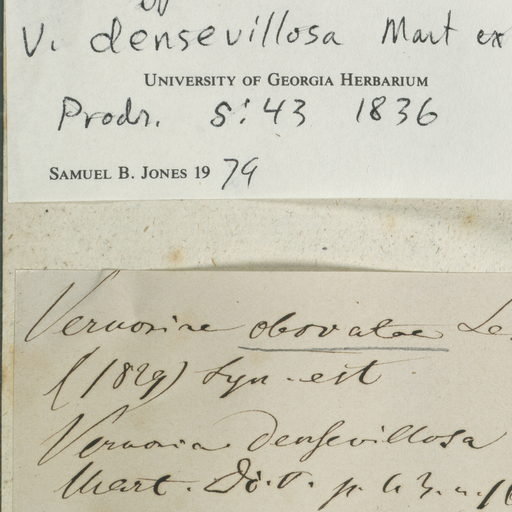 by
V. densevillosa Mart ex
UNIVERSITY OF GEORGIA HERBARIUM
Prodr. 5:43 1836
SAMUEL B. JONES 1979
Vernoniae obovatae Le
(1829) Syn. est
Vernonia densevillosa
Mart. D.C. p. 43. n.